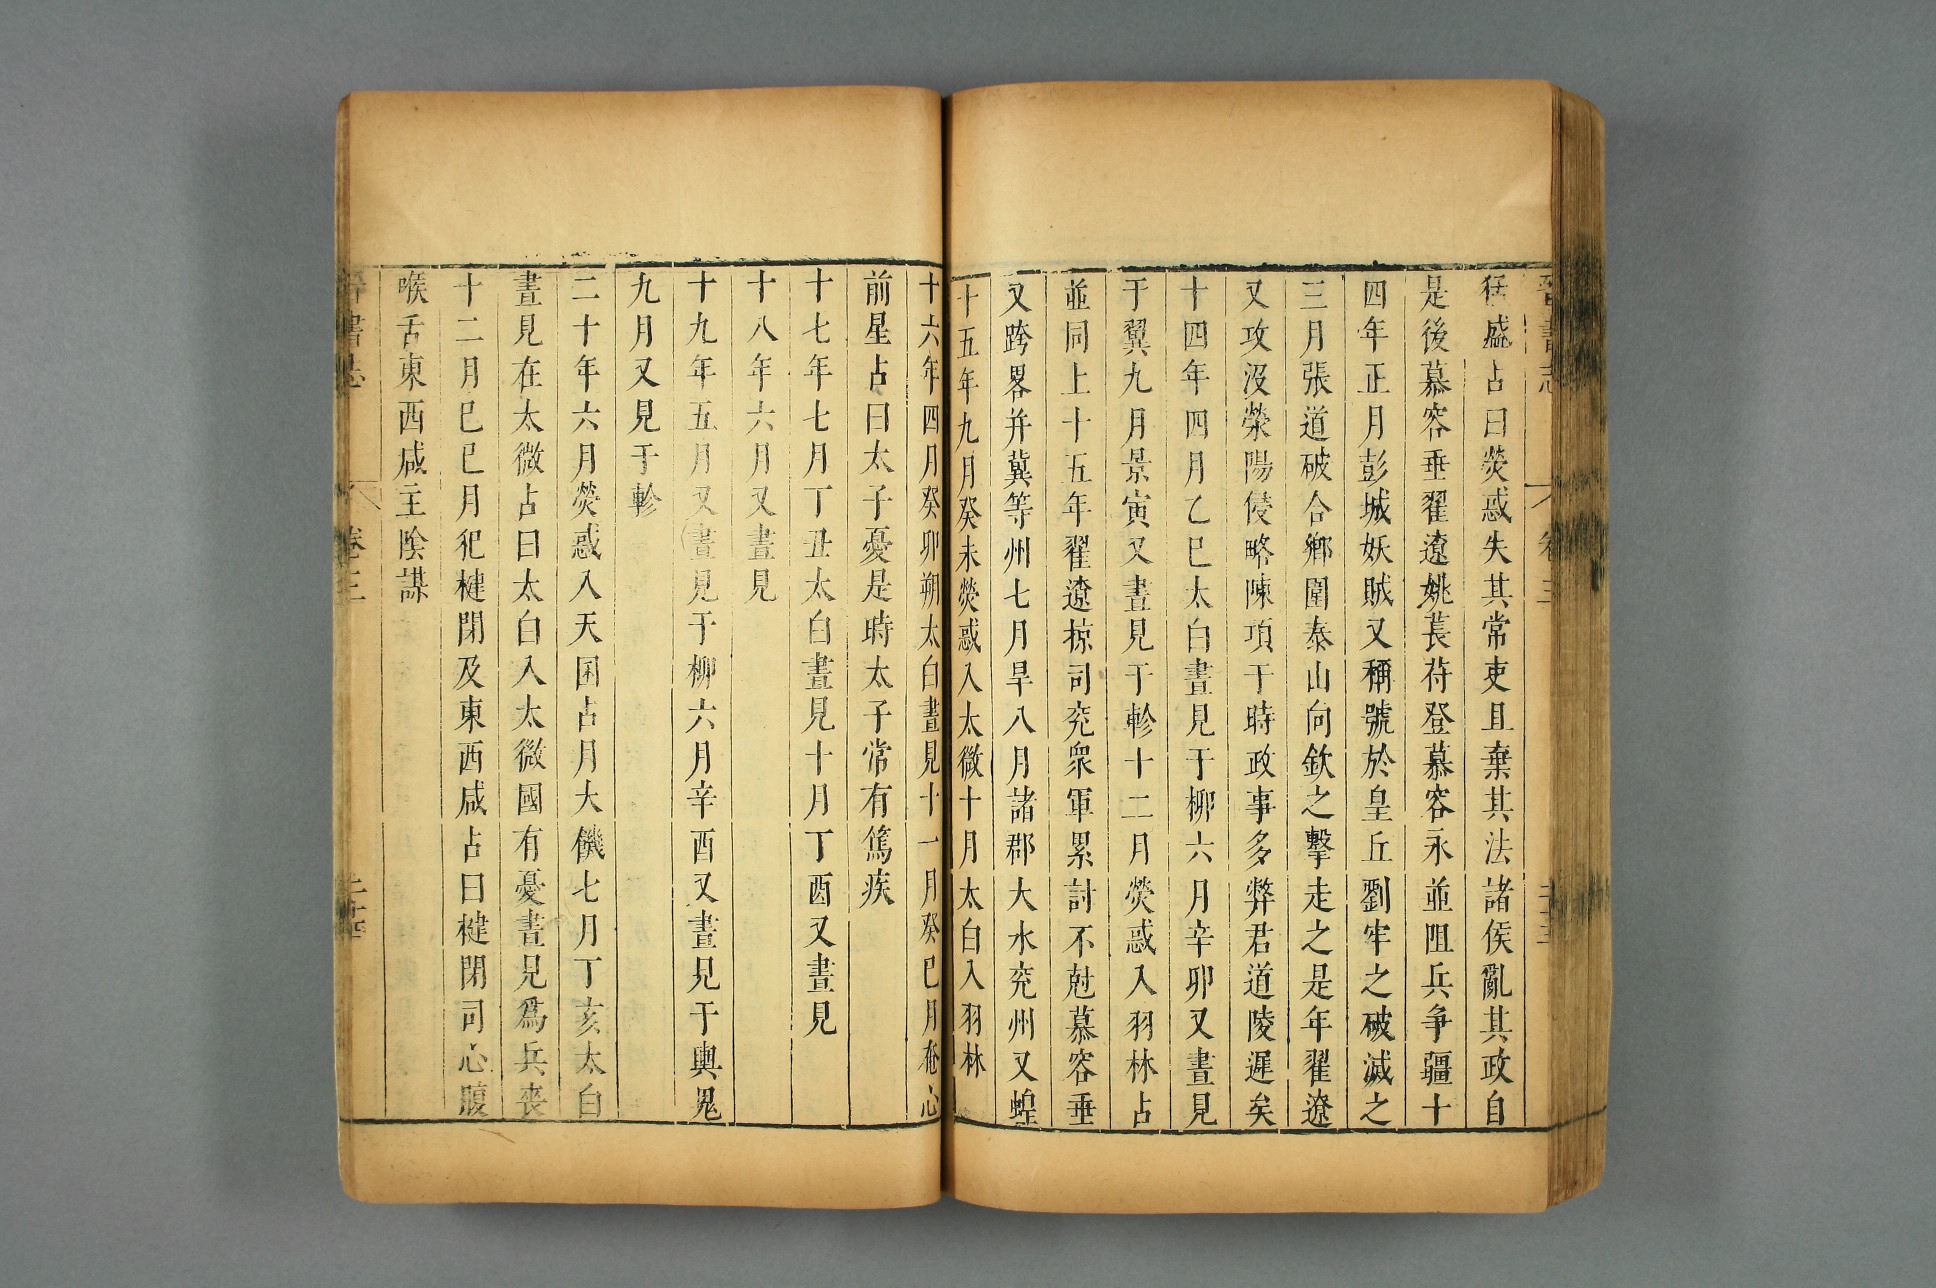 晉書志 卷三 二十三
猛盛占曰熒惑失其常吏且棄其法諸侯亂其政自
是後慕容垂翟遼姚萇苻登慕容永並阻兵爭疆十
四年正月彭城妖賊又稱號於皇丘劉牢之破滅之
三月張道破合鄉圍泰山向欽之擊走之是年翟遼
又攻沒滎陽侵略陳項于時政事多弊君道陵遲矣
十四年四月乙巳太白晝見于柳六月辛卯又晝見
于翼九月景寅又晝見于軫十二月熒惑入羽林占
並同上十五年翟遼掠司兗衆軍累討不尅慕容垂
又跨畧并冀等州七月旱八月諸郡大水兗州又蝗
十五年九月癸未熒惑入太微十月太白入羽林
十六年四月癸卯朔太白晝見十一月癸巳月奄心
前星占曰太子憂是時太子常有篤疾
十七年七月丁丑太白晝見十月丁酉又晝見
十八年六月又晝見
十九年五月又晝見于柳六月辛酉又晝見于輿鬼
九月又見于軫
二十年六月熒惑入天囷占月大饑七月丁亥太白
晝見在太微占曰太白入太微國有憂晝見爲兵喪
十二月巳巳月犯楗閉及東西咸占曰楗閉司心腹
喉舌東西咸主陰謀
晉書志 卷三